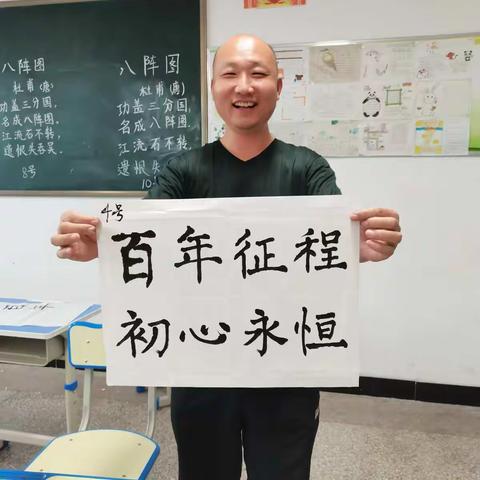 八阵图
杜甫(唐)
功盖三分国,
名成八阵图,
江流石不转,
遗恨失吞吴
8号
八阵图
杜甫(唐)
功盖三分国,
名成八阵图,
江流石不转,
遗恨失
10
4号
百年征程
初心永恒